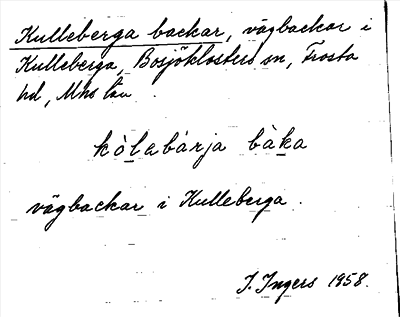 Kulleberga backar, vägbackar i
Kulleberga, Bosjöklosters sn, Frosta
hd, Mhs län.
kòlabárja bàka
vägbackar i Kulleberga.
I. Ingers 1958.